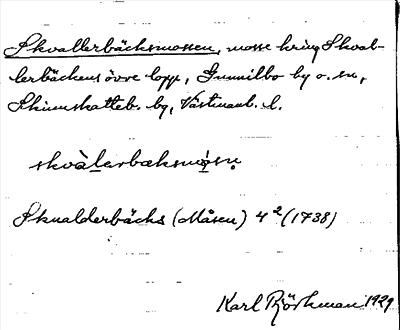 Skvallerbäcksmossen, mosse kring Skval-
lerbäckens övre lopp, Gunnilbo by o. sn,
Skinnskatteb. bg, Västmanl. l.
skvàlerbæksmòsn
Skualderbäcks (Måsen) 4² (1738)
Karl Björkman 1929